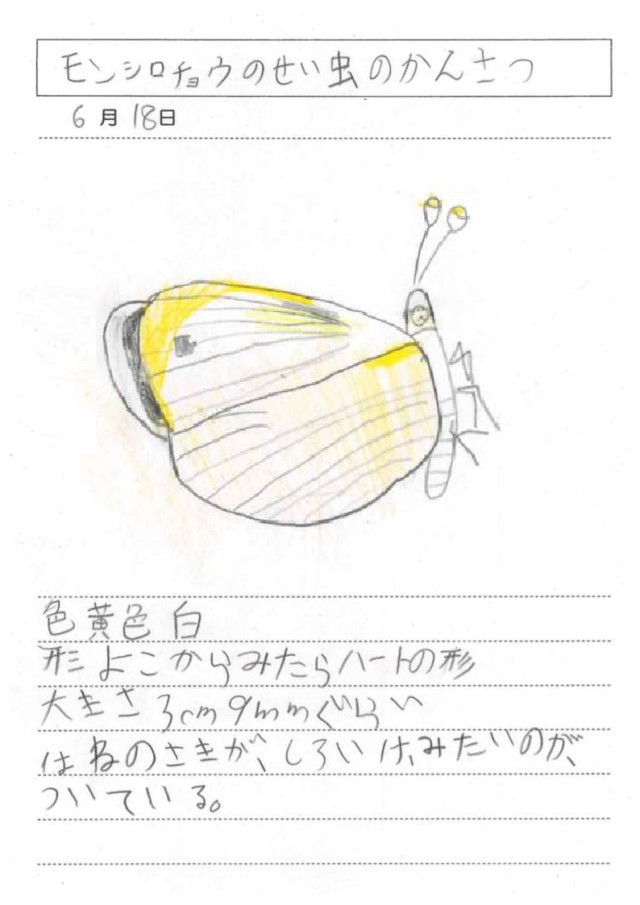 モンシロチョウのせい虫のかんさつ
6月18日
色黄色 白
形 よこからみたらハートの形
大きさ3cm9mmぐらい
はねのさきが、しろいけ、みたいのが、
ついている。